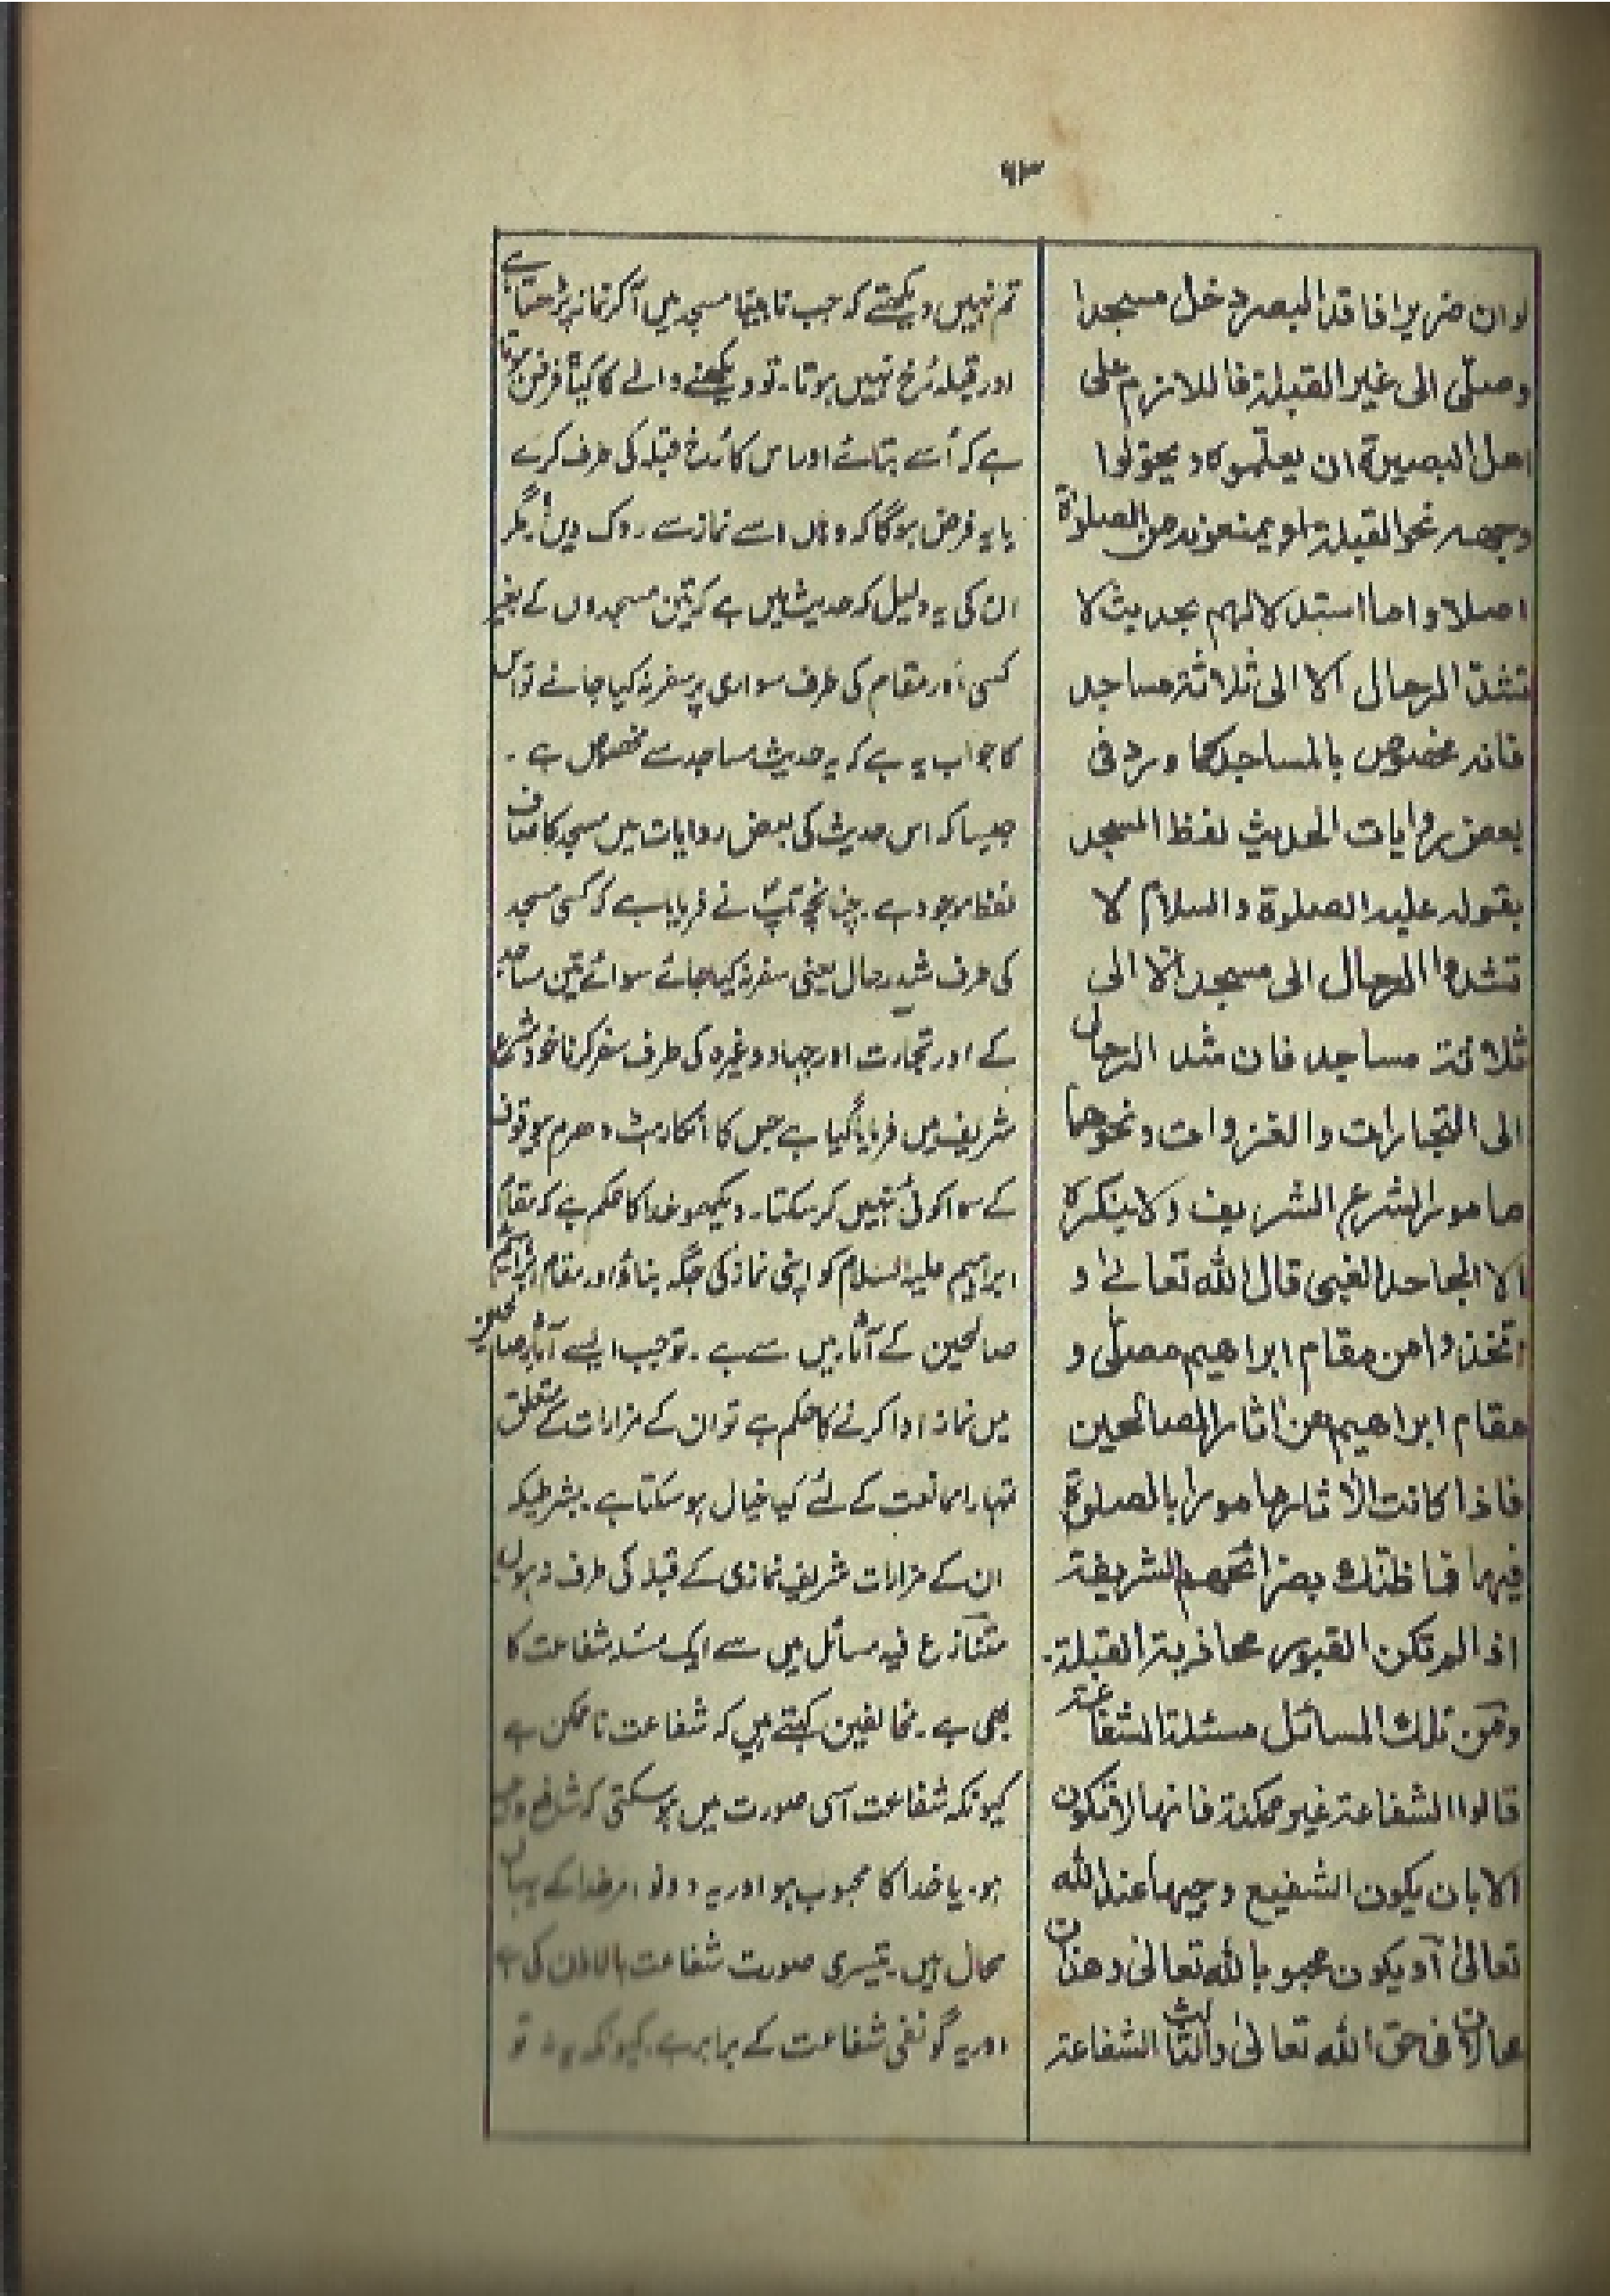 ٦٣
لو ان ضريرا فاقد البصر دخل مسجدا
وصلّى الى غير القبلة فاللازم على
اهل البصيرة ان يعلّموه و يحوّلوا
وجهه نحو القبلة او يمنعونه عن الصلوٰة
اصلا و اما استدلالهم بحديث لا
تشدّ الرحال الا الى ثلاثة مساجد
فانه مخصوص بالمساجد كما ورد فى
بعض روايات الحديث لفظ المسجد
بقوله عليه الصلوة والسلام لا
تشدوا الرحال الى مسجد الّا الى
ثلاثة مساجد فان شد الرحال
الى التجارات والغزوات ونحوهما
مامور الشرع الشريف ولا ينكره
الا الجاحد الغبى قال الله تعالىٰ و
اتخذوا من مقام ابراهيم مصلّى و
مقام ابراهيم من اثار الصالحين
فاذا كانت الأثار مامورا بالصلوة
فيها فما ظنّك بمزائحهم الشريفة
اذا لم تكن القبور محاذية القبلة.
ومن تلك المسائل مسئلة الشفاعة
قالوا الشفاعة غير ممكنة فانها لا تكون
الا بان يكون الشفيع وجيها عند الله
تعالىٰ او يكون محبوبا لله تعالىٰ وهذان
محالان فى حق الله تعالىٰ والثالث الشفاعة
تم نہیں دیکھتے کہ جب نابینا مسجد میں آ کر نماز پڑھتا ہے
اور قبلہ رُخ نہیں ہوتا۔ تو دیکھنے والے کا کیا فرض ہوتا
ہے کہ اُسے بتائے اور اس کا رُخ قبلہ کی طرف کرے
یا یہ فرض ہوگا کہ وہ اسے نماز سے روک دیں۔ مگر
ان کی یہ دلیل کہ حدیث میں ہے کہ تین مسجدوں کے بغیر
کسی اور مقام کی طرف سواری پر سفر نہ کیا جائے تو اس
کا جواب یہ ہے کہ یہ حدیث مساجد سے مخصوص ہے۔
جیسا کہ اس حدیث کی بعض روایات میں مسجد کا صاف
لفظ موجود ہے۔ چنانچہ آپؐ نے فرمایا ہے کہ کسی مسجد
کی طرف شد رحال یعنی سفر نہ کیا جائے سوائے تین مساجد
کے اور تجارت اور جہاد وغیرہ کی طرف سفر کرنا خود شرع
شریف میں فرمایا گیا ہے جس کا انکار ہٹ دھرم بیوقوف
کے سوا کوئی نہیں کر سکتا۔ دیکھو خدا کا حکم ہے کہ مقام
ابراہیم علیہ السلام کو اپنی نماز کی جگہ بناؤ اور مقام ابراہیم
صالحین کے آثار میں سے ہے۔ تو جب ایسے آثار صالحین
میں نماز ادا کرنے کا حکم ہے تو ان کے مزارات کے متعلق
تمہارا ممانعت کے لئے کیا خیال ہو سکتا ہے۔ بشرطیکہ
ان کے مزارات شریفہ نمازی کے قبلہ کی طرف نہ ہوں
متنازع فیہ مسائل میں سے ایک مسئلہ شفاعت کا
بھی ہے۔ مخالفین کہتے ہیں کہ شفاعت ناممکن ہے
کیونکہ شفاعت اسی صورت میں ہو سکتی کہ شافع
ہو۔ یا خدا کا محبوب ہو اور یہ دونو امر خدا کے یہاں
محال ہیں۔ تیسری صورت شفاعت بالاذن کی ہے
اور یہ گو نفی شفاعت کے برابر ہے۔ کیونکہ